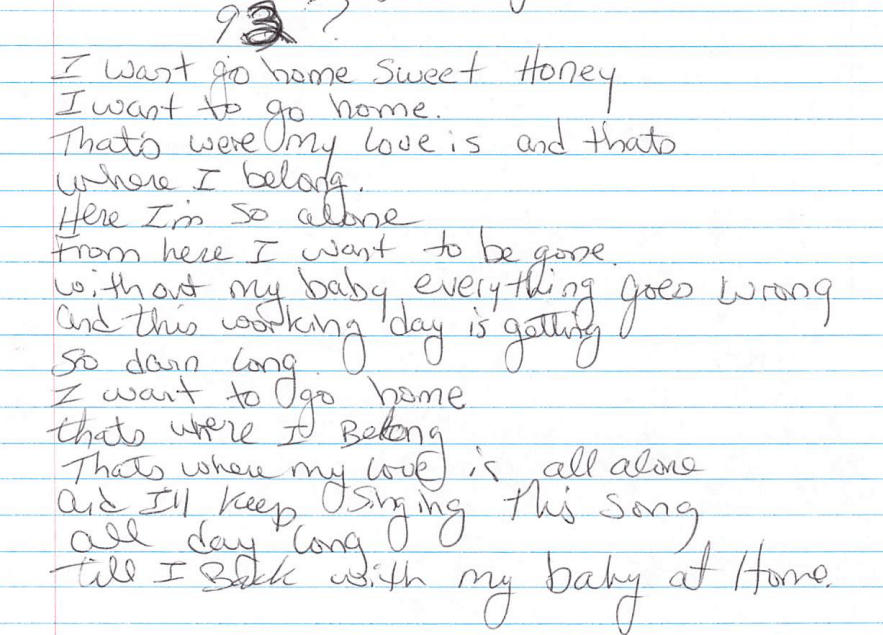 93 ?
I want go home sweet Honey
I want to go home.
That's were my love is and thats
where I belong.
Here I'm so alone
From here I want to be gone.
without my baby everything goes wrong
and this working day is getting
so darn long.
I want to go home
thats where I Belong
Thats where my love is all alone
and I'll keep singing this song
all day long
till I Back with my baby at Home.